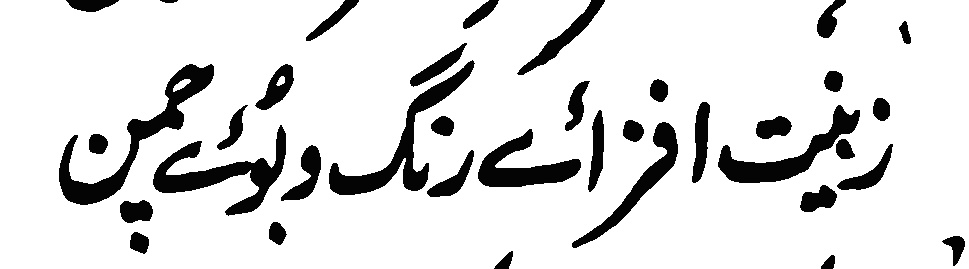 زینت افزائے رنگ و بوئے چمن